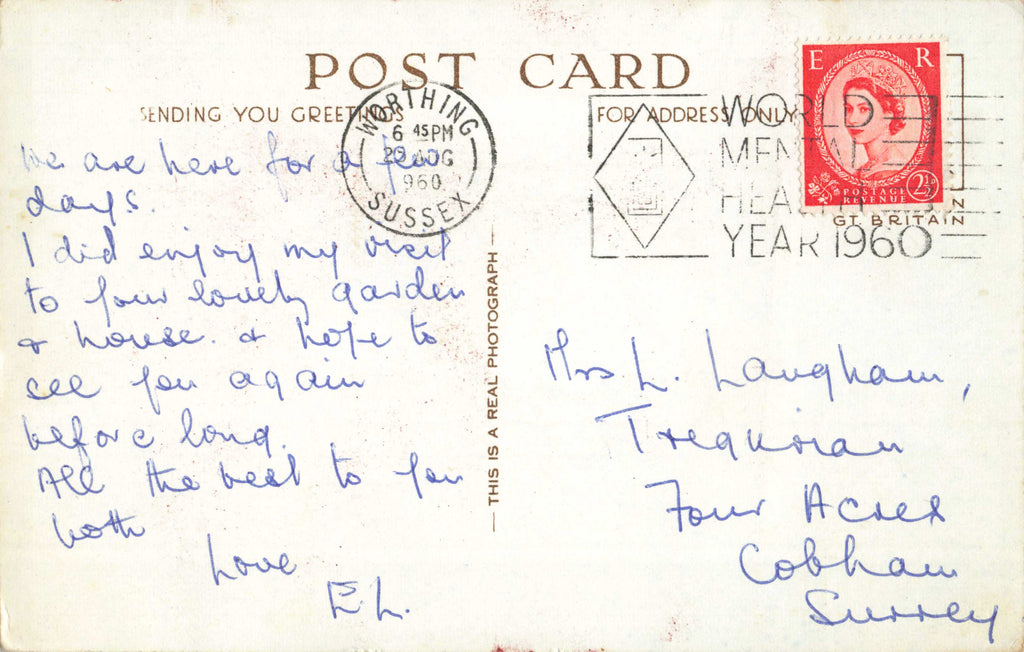 POST CARD
SENDING YOU GREETINGS
FOR ADDRESS ONLY
WORTHING
6 45PM
AUG
1960
SUSSEX
WORLD
MENTAL
HEALTH
YEAR 1960
E R
POSTAGE
REVENUE
2½D
GT. BRITAIN
We are here for a few
days.
I did enjoy my visit
to your lovely garden
& house. & hope to
see you again
before long.
All the best to you
both
Love
E.L.
THIS IS A REAL PHOTOGRAPH
Mrs L. Langham,
Four Acres
Cobham
Surrey